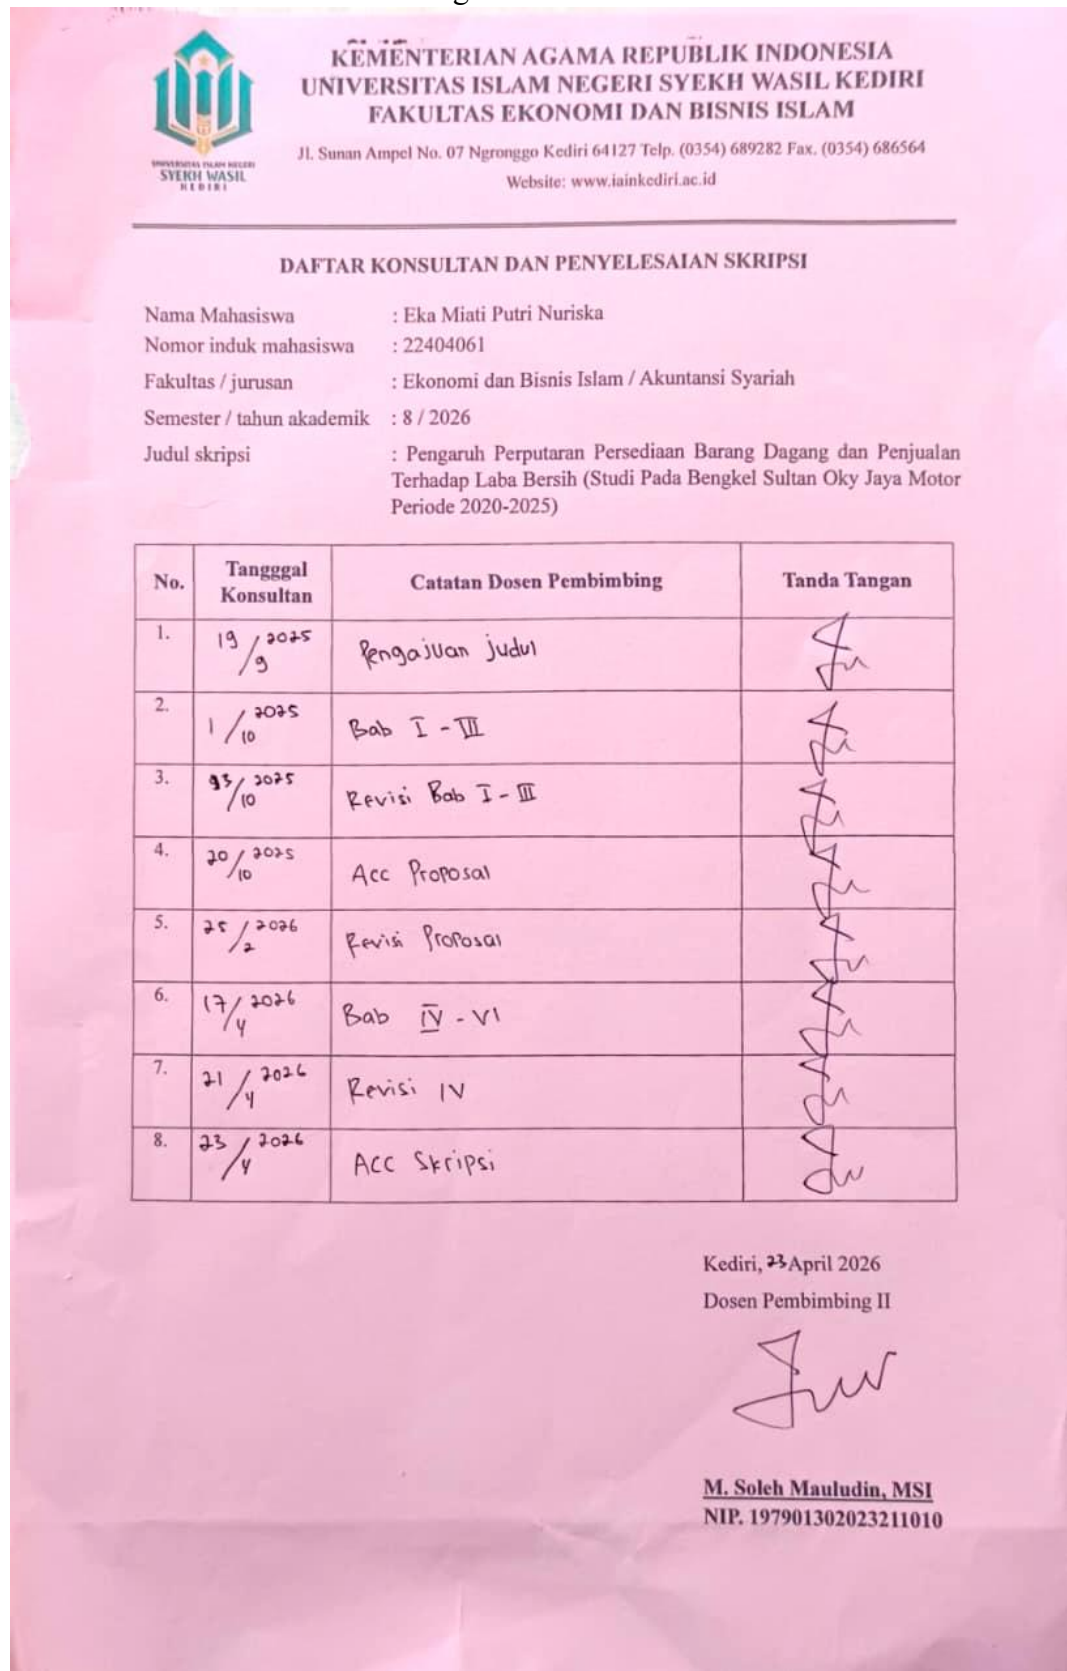 KEMENTERIAN AGAMA REPUBLIK INDONESIA
UNIVERSITAS ISLAM NEGERI SYEKH WASIL KEDIRI
FAKULTAS EKONOMI DAN BISNIS ISLAM
Jl. Sunan Ampel No. 07 Ngronggo Kediri 64127 Telp. (0354) 689282 Fax. (0354) 686564
Website: www.iainkediri.ac.id
UNIVERSITAS ISLAM NEGERI
SYEKH WASIL
KEDIRI
DAFTAR KONSULTAN DAN PENYELESAIAN SKRIPSI
Nama Mahasiswa : Eka Miati Putri Nuriska
Nomor induk mahasiswa : 22404061
Fakultas / jurusan : Ekonomi dan Bisnis Islam / Akuntansi Syariah
Semester / tahun akademik : 8 / 2026
Judul skripsi : Pengaruh Perputaran Persediaan Barang Dagang dan Penjualan
Terhadap Laba Bersih (Studi Pada Bengkel Sultan Oky Jaya Motor
Periode 2020-2025)
No. Tangggal Konsultan Catatan Dosen Pembimbing Tanda Tangan
1. 19/9 2025 Pengajuan judul
2. 1/10 2025 Bab I - III
3. /10 2025 Revisi Bab I - III
4. 20/10 2025 Acc Proposal
5. 25/2 2026 Revisi Proposal
6. 17/4 2026 Bab IV - VI
7. 21/4 2026 Revisi IV
8. 23/4 2026 Acc Skripsi
Kediri, 23 April 2026
Dosen Pembimbing II
M. Soleh Mauludin, MSI
NIP. 197901302023211010